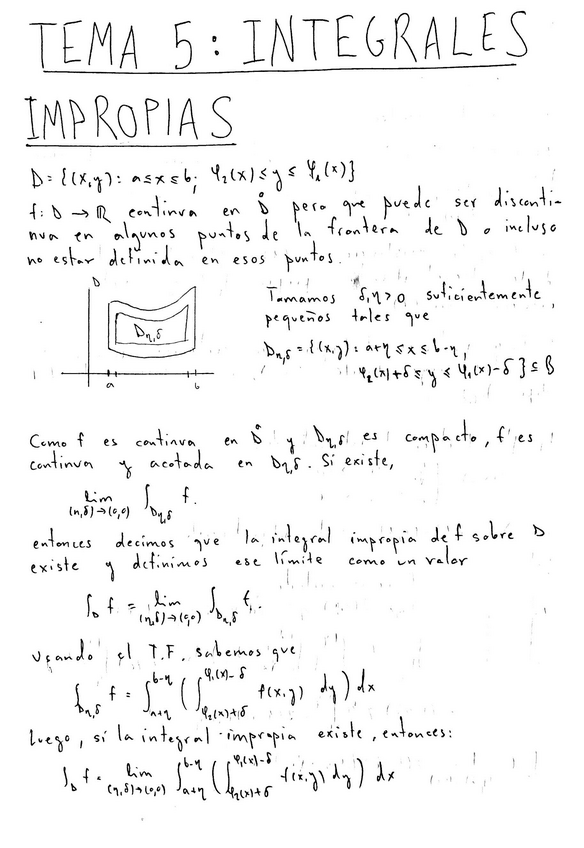 TEMA 5: INTEGRALES
IMPROPIAS
D={(x,y): a≤x≤b; φ₂(x)≤y≤φ₁(x)}
f: D → ℝ continua en D̊ pero que puede ser disconti-
nua en algunos puntos de la frontera de D o incluso
no estar definida en esos puntos.
D
D_{η,δ}
a b
Tomamos δ,η>0 suficientemente
pequeños tales que
D_{η,δ}={(x,y): a+η≤x≤b-η,
φ₂(x)+δ≤y≤φ₁(x)-δ}⊆D̊
Como f es continua en D̊ y D_{η,δ} es compacto, f es
continua y acotada en D_{η,δ}. Si existe,
lim_{(η,δ)→(0,0)} ∫_{D_{η,δ}} f.
entonces decimos que la integral impropia de f sobre D
existe y definimos ese límite como un valor
∫_D f = lim_{(η,δ)→(0,0)} ∫_{D_{η,δ}} f.
Usando el T.F. sabemos que
∫_{D_{η,δ}} f = ∫_{a+η}^{b-η} (∫_{φ₂(x)+δ}^{φ₁(x)-δ} f(x,y) dy) dx
Luego, si la integral impropia existe, entonces:
∫_D f = lim_{(η,δ)→(0,0)} ∫_{a+η}^{b-η} (∫_{φ₂(x)+δ}^{φ₁(x)-δ} f(x,y) dy) dx